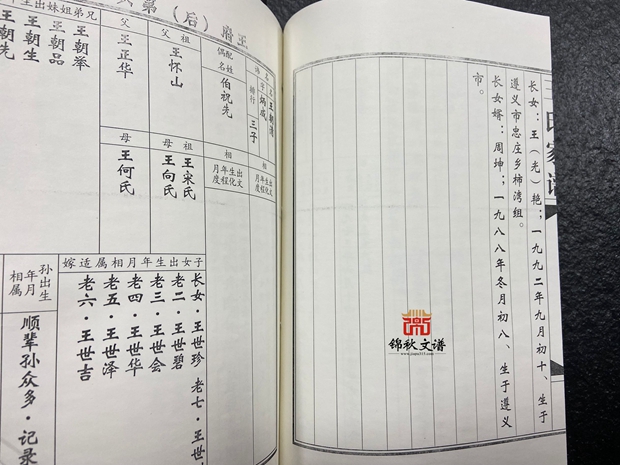 王氏家谱
长女：王（光）艳；一九九二年九月初十、生于
遵义市忠庄乡柿湾组。
长女婿：周坤；一九八八年冬月初八、生于遵义
市。
锦秋文谱
王府（后）第
名
字
排行
炳成
三子
偶配
姓名
伯祝先
相
出生年月
文化程度
相
出生年月
文化程度
祖父
王怀山
母
王宋氏
王向氏
父
王正华
母
王何氏
出生妹姐弟兄
王朝举
王朝品
王朝生
王朝先
子女出生年月相属适嫁
长女·王世珍
老七·王世
老二·王世碧
老三·王世会
老四·王世华
老五·王世泽
老六·王世吉
孙出生
年月
相属
顺辈孙众多·记录